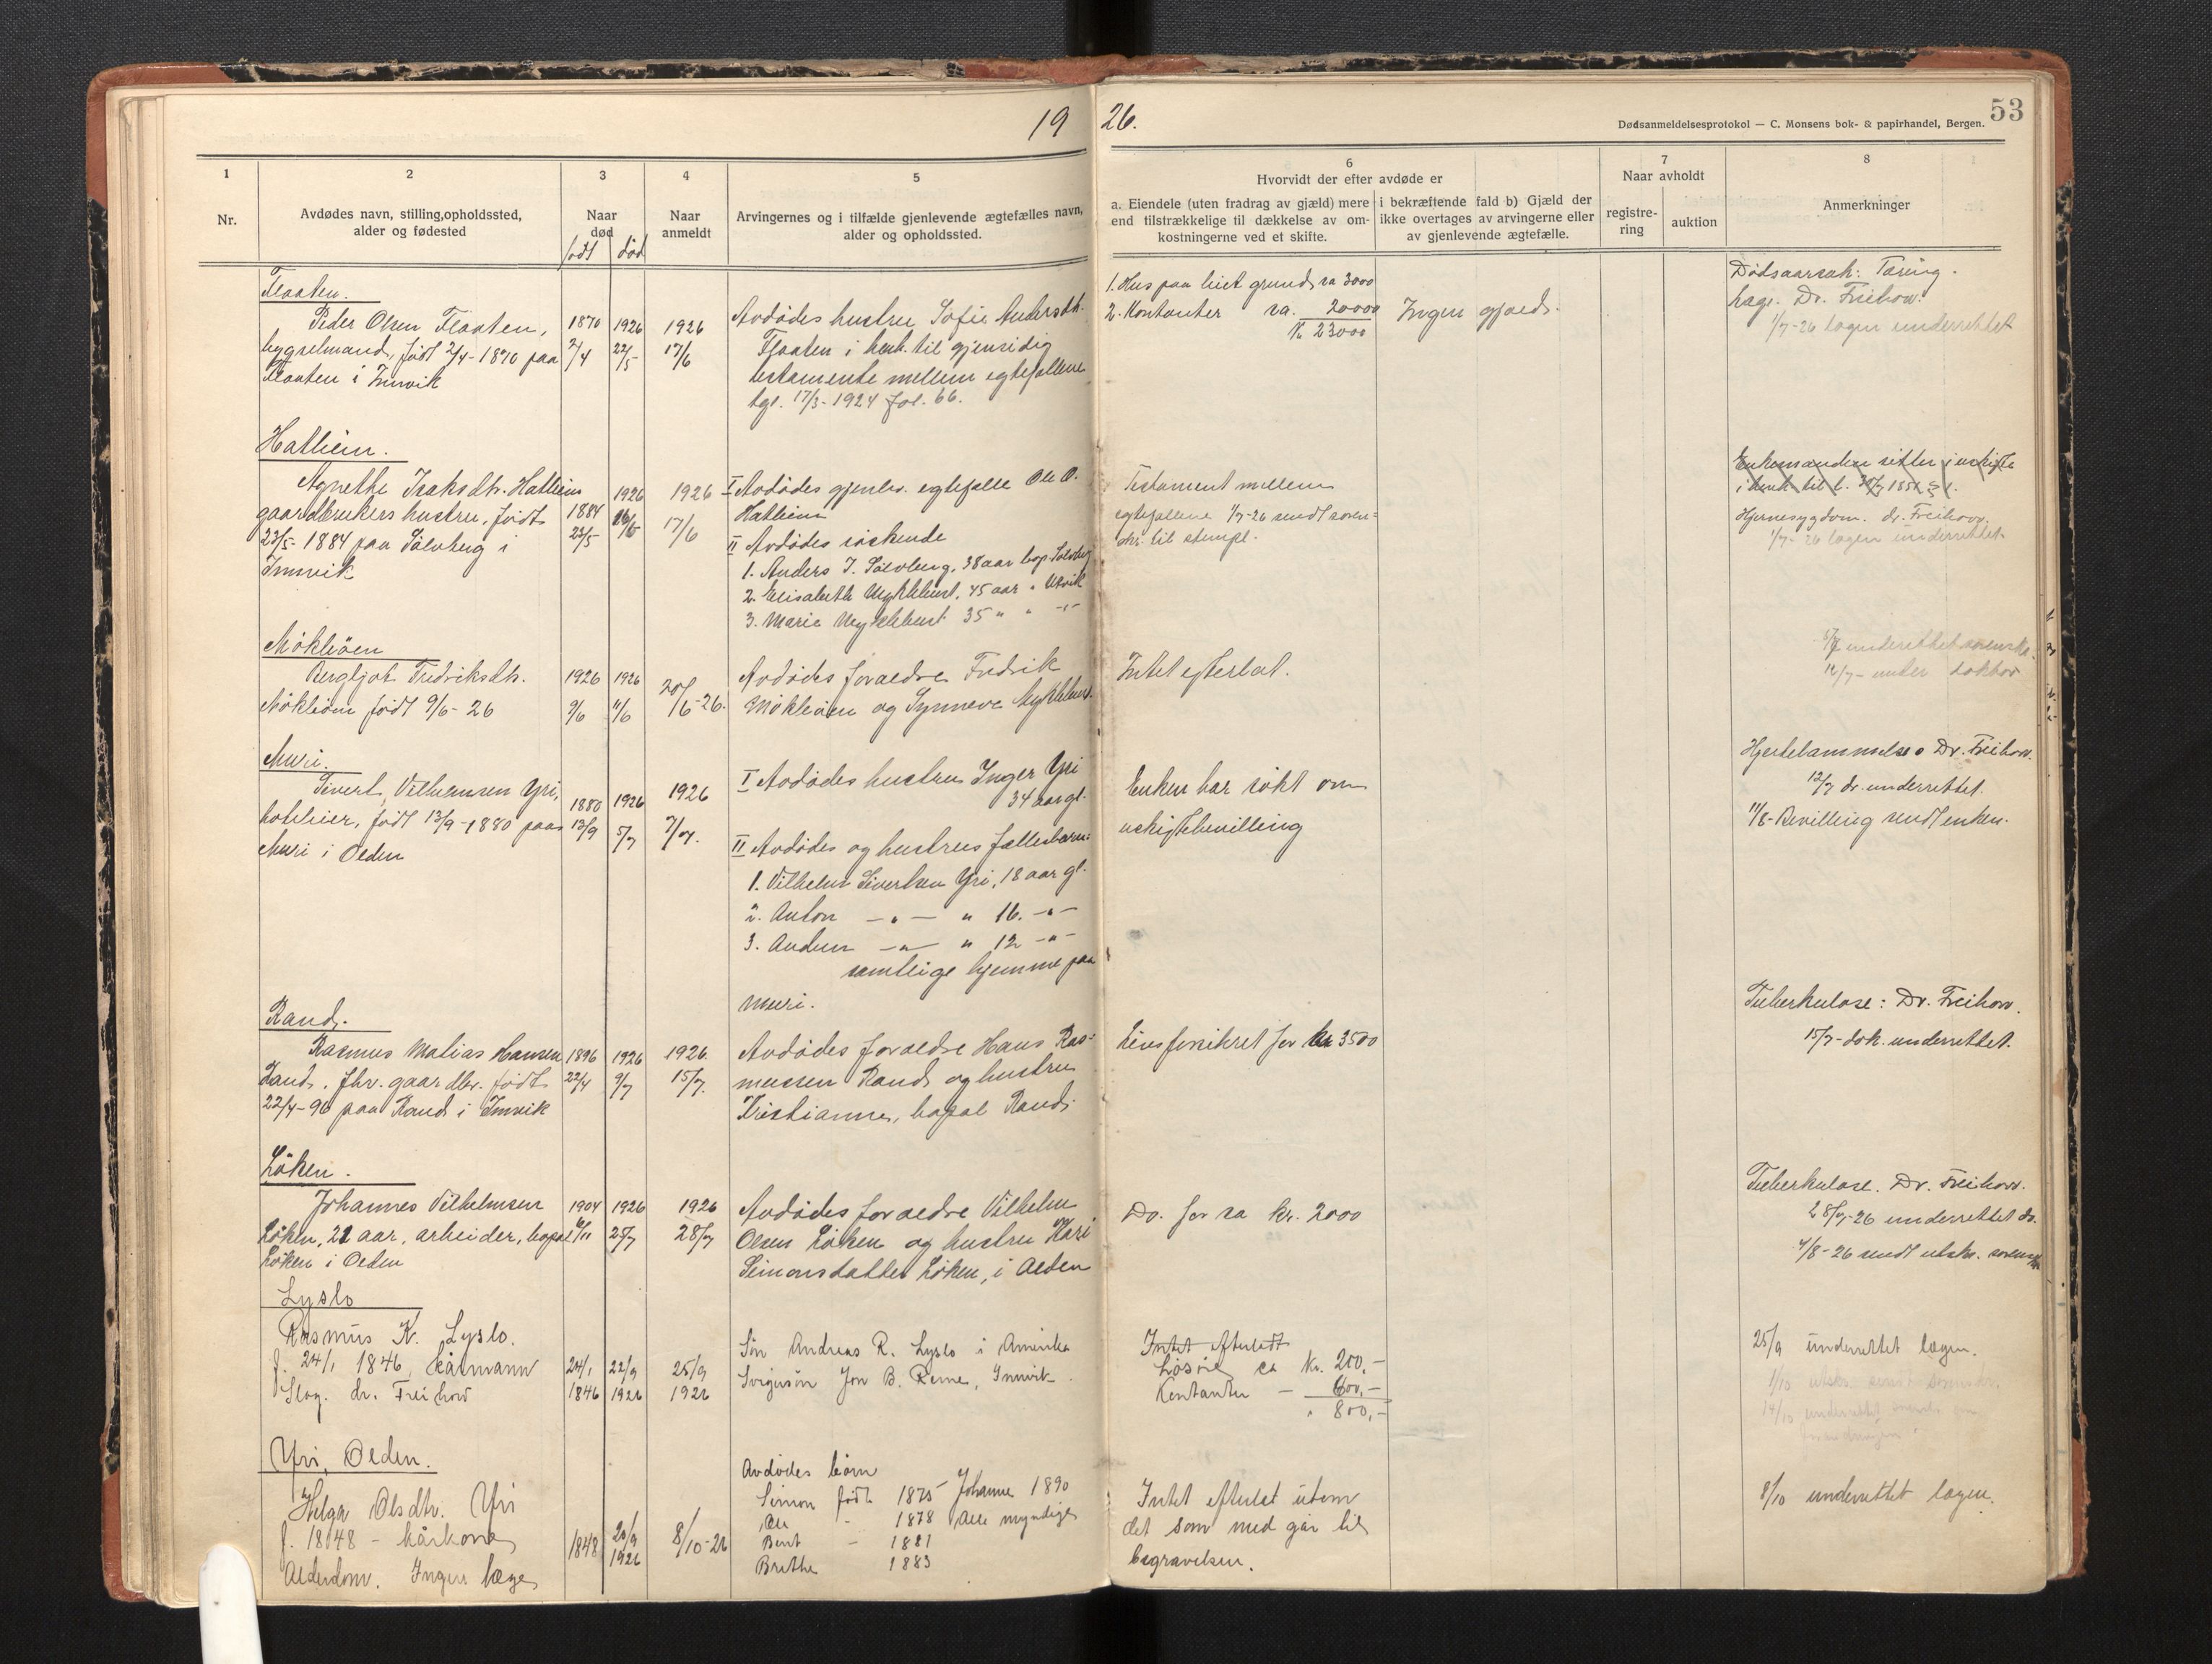 19 26.
53
Dødsanmeldelsesprotokol — C. Monsens bok- & papirhandel, Bergen.
1
Nr.
2
Avdødes navn, stilling, opholdssted,
alder og fødested
3
Naar
død
født død
4
Naar
anmeldt
5
Arvingernes og i tilfælde gjenlevende ægtefælles navn,
alder og opholdssted.
6
Hvorvidt der efter avdøde er
a. Eiendele (uten fradrag av gjæld) mere
end tilstrækkelige til dækkelse av om-
kostningerne ved et skifte.
i bekræftende fald b) Gjæld der
ikke overtages av arvingerne eller
av gjenlevende ægtefælle.
7
Naar avholdt
registre-
ring
auktion
8
Anmerkninger
Flaaten.
Peder Olsen Flaaten,
bygselmand, født 2/4-1870 paa
Flaaten i Innvik
1870
2/4
1926
22/5
1926
17/6
Avdødes hustru Sofie Andersdt.
Flaaten i henh. til gjensidig
testamente mellem egtefællene
tgl. 17/3-1924 fol. 66.
1. Hus paa leiet grund, ca 3000
2. Kontanter ca. 20000
Kr 23000
Ingen gjæld.
Dødsaarsak: Tæring.
læge. Dr. Freihow.
1/7-26 lægen underrettet
Hatleim.
Agnethe Isaksdtr. Hatleim
gaardbrukers hustru, født
23/5-1884 paa Sølvberg i
Innvik
1884
23/5
1926
16/5
1926
17/6
I Avdødes gjenlev. egtefælle Ole O.
Hatleim
II Avdødes søskende
1. Anders I. Sølvberg, 38 aar bop. Sølvberg
2. Elisabeth Myklebust, 45 aar " Utvik
3. Marie Myklebust 35 " " -"-
Testament mellem
egtefællene 1/7-26 sendt soren-
skr. til stempl.
Enkemanden sitter i uskifte
i henh. til l. 30/7 1851 § 1.
Hjernesygdom. dr. Freihow.
1/7-26 lægen underrettet.
Mökleöen
Bergljot Fredriksdtr.
Mökleöen født 9/6-26
1926
9/6
1926
11/6
20/6-26.
Avdødes foraeldre Fredrik
Mökleöen og Synneve Myklebust.
Intet efterlat.
underrettet sorenskr.
Muri.
Sivert Vilhelmsen Yri,
hoteleier, født 13/9-1880 paa
Muri i Olden
1880
13/9
1926
5/7
1926
7/7.
I Avdødes hustru Inger Yri
34 aar gl.
II Avdødes og hustrus fællesbarn:
1. Vilhelm Sivertsen Yri, 18 aar gl.
2. Anton —"— " 16. -"-
3. Anders —"— " 12 -"-
samtlige hjemme paa
Muri.
Enken har søkt om
uskiftebevilling
Hjertelammelse Dr. Freihow.
12/7 dr. underrettet.
11/8-Bevilling sendt enken.
Rand.
Rasmus Matias Hansen
Rand, fhv. gaardbr. født
22/4-96 paa Rand i Innvik
1896
22/4
1926
9/7
1926.
15/7.
Avdødes foraeldre Hans Ras-
mussen Rand og hustru
Kristianne, bopæl Rand.
Livsforsikret for kr 3500
Tuberkulose: Dr. Freihow.
15/7-dok. underrettet.
Löken.
Johannes Vilhelmsen
Löken, 21 aar, arbeider, bopæl
Löken i Olden
1904
6/11
1926
25/7
1926
28/7
Avdødes foraeldre Vilhelm
Olsen Löken og hustru Kari
Simonsdatter Löken, i Olden
Do. for ca kr. 2000
Tuberkulose. Dr. Freihow.
28/7-26 underrettet dr.
4/8-26 sendt utskr. sorenskr.
Lyslo
Rasmus K. Lyslo.
f. 24/1 1846, kårmann
Slag. dr. Freihow
24/1
1846
22/9
1926
25/9
1926
Søn Andreas R. Lyslo i Amerika
Svigersøn Jon B. Reme, Innvik.
Intet efterladt
Løsøre ca kr. 200,-
Kontanter — 600,-
" 800,-
25/9 underrettet lægen.
1/10 utskr. sendt sorenskr.
14/10 underrettet
Yri, Olden.
Helga Olsdtr. Yri
f. 1848 - kårkone
Alderdom. Ingen læge
1848
20/9
1926
8/10-26
Avdødes børn
Simon født 1875 Johanne 1890
Ole - 1878 Alle myndige
Bent - 1881
Brithe 1883
Intet efterlat utom
det som med går til
begravelsen.
8/10 underrettet lægen.